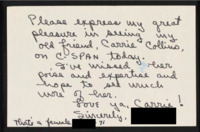 Please express my great
pleasure in seeing my
old friend, Carrie Collins,
on C SPAN today.
I've missed her
poise and expertise and
hope to see much
more of her.
Love ya, Carrie!
Sincerely,
That's a female